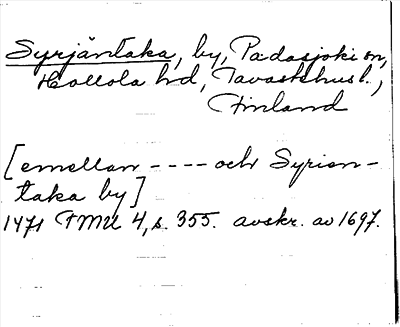 Syrjäntaka, by, Padasjoki sn,
Hollola hd, Tavastehus l.,
Finland
[emellan ---- och Syrian-
taka by]
1471 FMU 4, s. 355. avskr. av 1697.